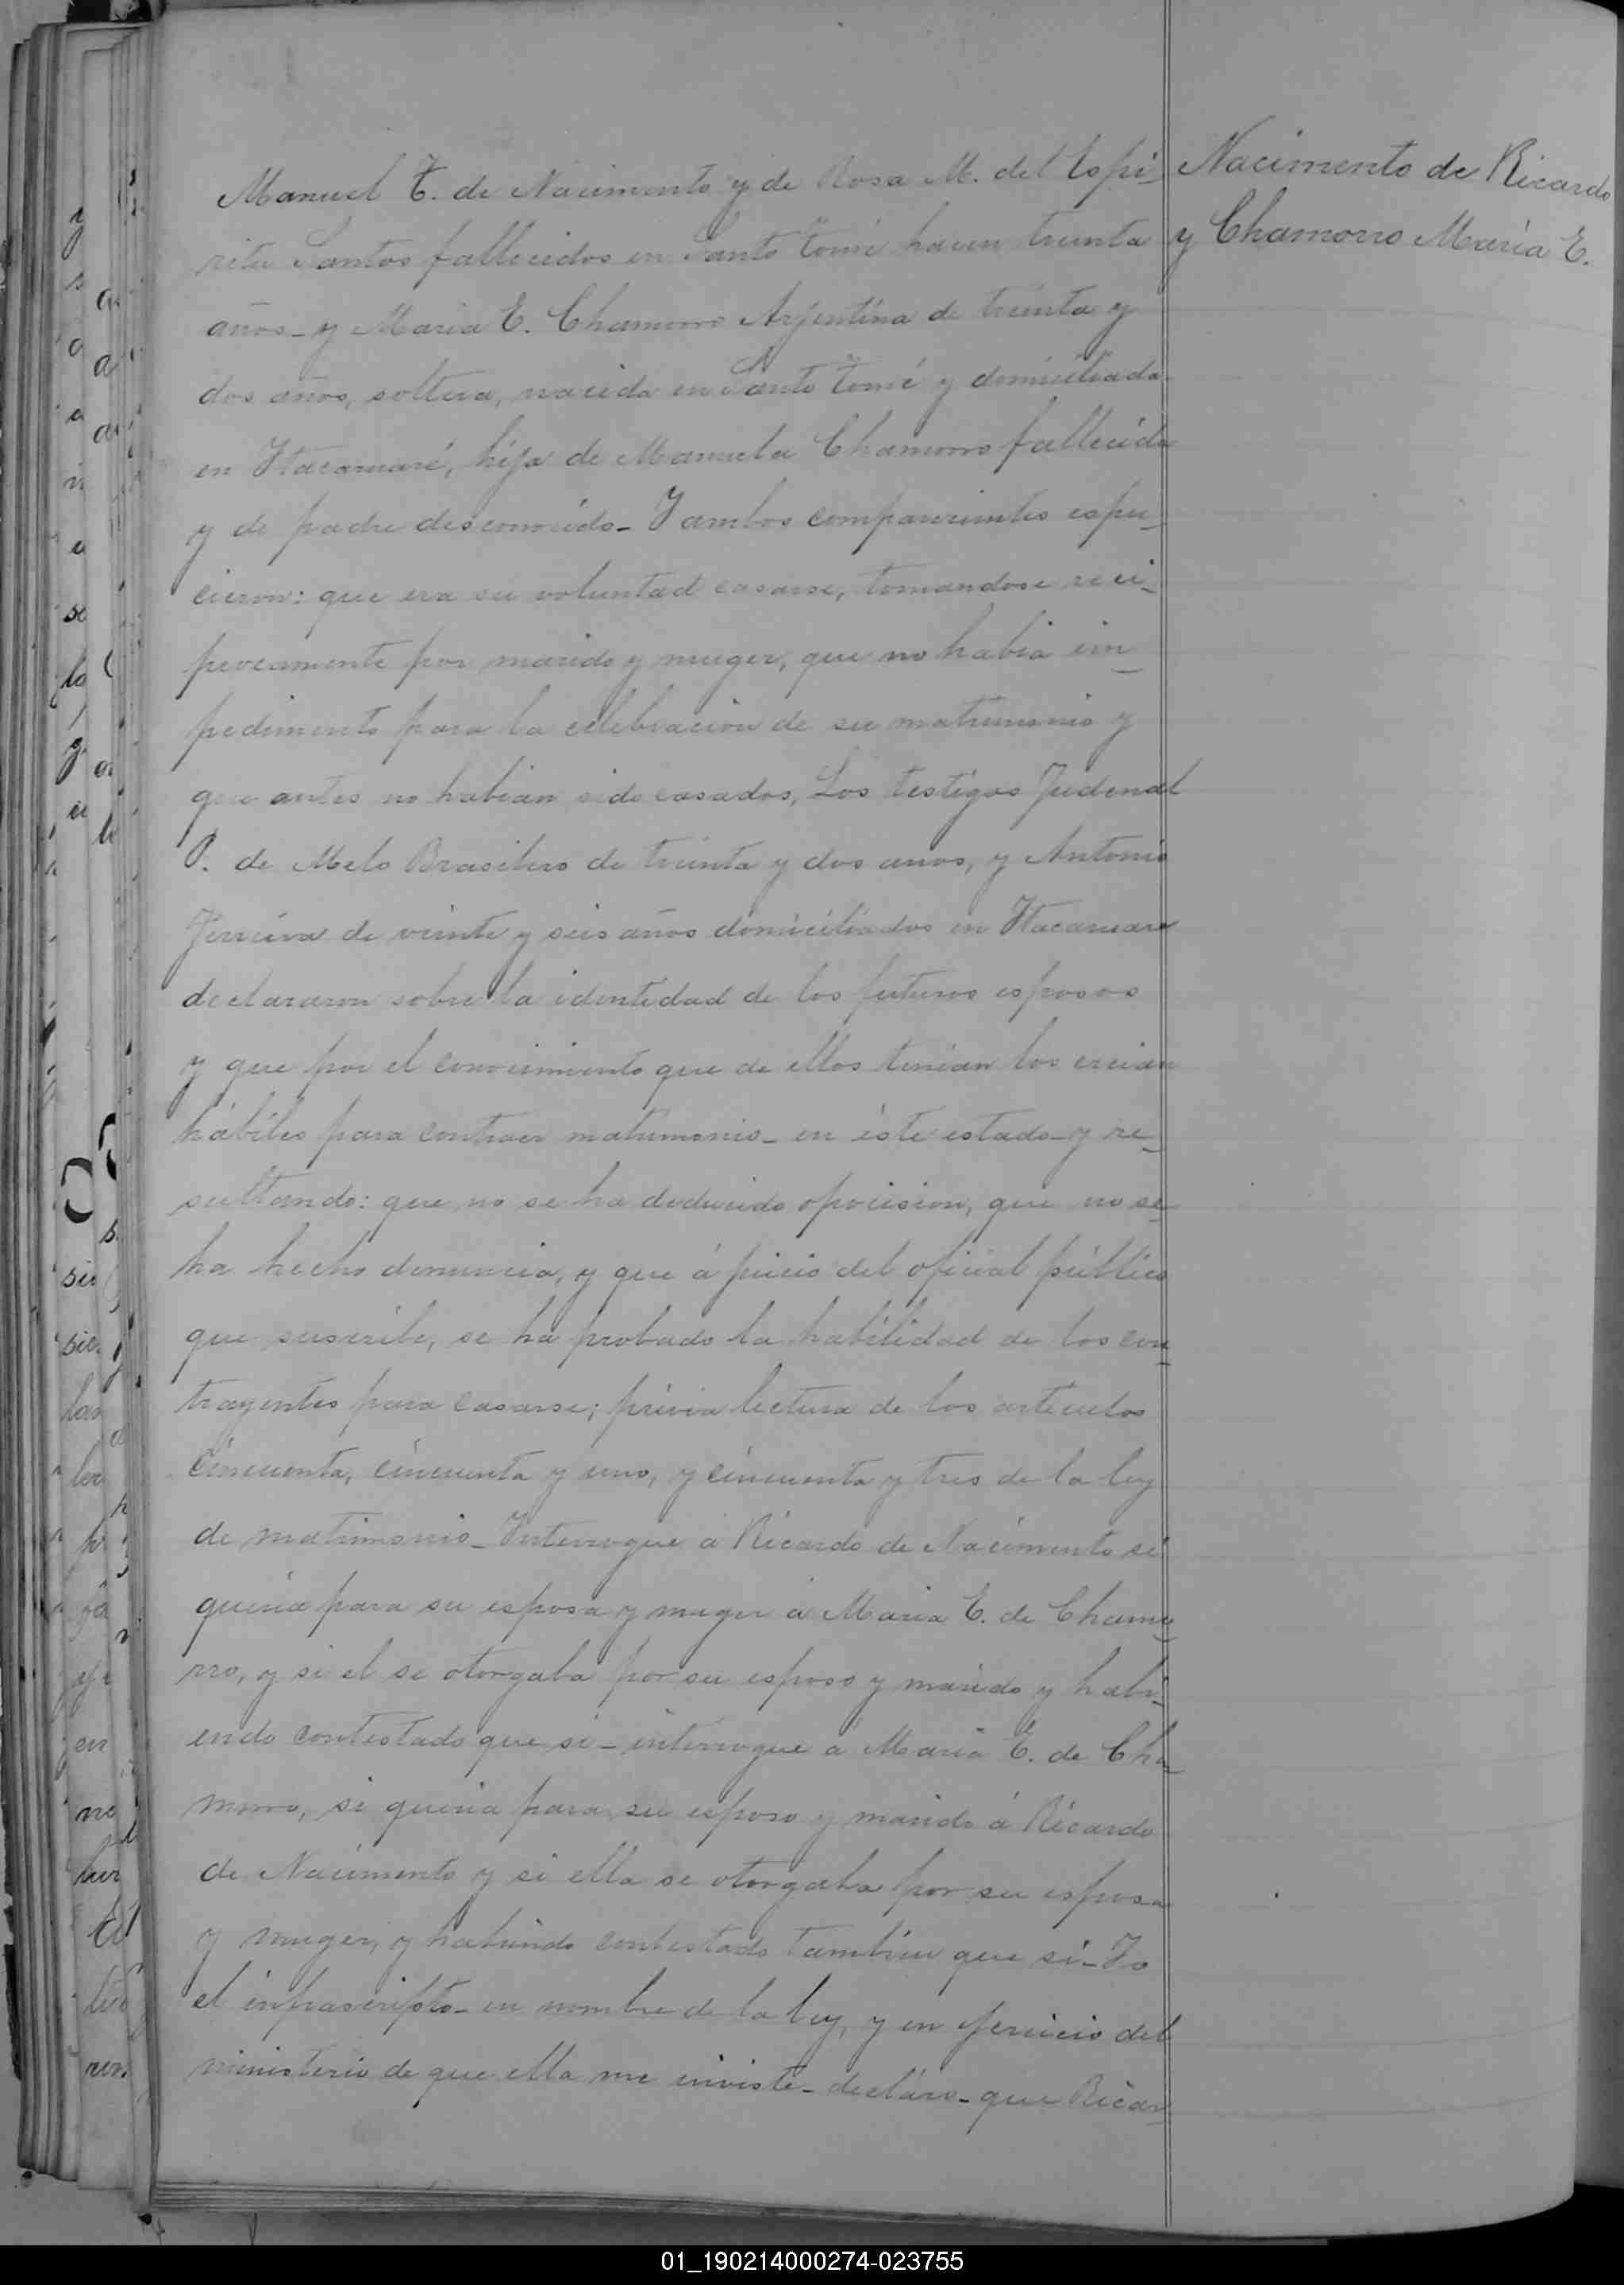 Nacimento de Ricardo
y Chamorro María E.
Manuel T. de Nacimento y de Rosa M. del Espi_
ritu Santos fallecidos en Santo Tomé hacen treinta
años_ y Maria E. Chamorro Arjentina de treinta y
dos años, soltera, nacida en Santo Tomé y domiciliada
en Itacaruaré, hija de Manuela Chamorro fallecida
y de padre desconocido_ Y ambos comparecientes espu_
cieron: que era su voluntad casarse, tomandose reci_
procamente por marido y muger, que no habia im_
pedimento para la celebracion de su matrimonio y
que antes no habian sido casados, Los testigos Juvenal
P. de Melo Brasilero de treinta y dos anos, y Antonio
Ferreira de veinte y seis años domiciliados en Itacaruare
declararon sobre la identidad de los futuros esposos
y que por el conocimiento que de ellos tenian los creian
hábiles para contraer matrimonio_ en éste estado_ y re_
sultando: que no se ha deducido opocision, que no se
ha hecho denuncia, y que á juicio del oficial público
que suscribe, se ha probado la habilidad de los con_
trayentes para casarse; prévia lectura de los articulos
cincuenta, cincuenta y uno, y cincuenta y tres de la ley
de matrimonio_ Interrogue á Ricardo de Nacimento si
queria para su esposa y muger á Maria E. de Chamo_
rro, y si el se otorgaba por su esposo y marido y habi_
endo contestado que si_ interrogue á Maria E. de Cha_
morro, si queria para su esposo y marido á Ricardo
de Nacimento y si ella se otorgaba por su esposa
y muger, y habiendo contestado tambien que si_ Yo
el infrascripto_ en nombre de la ley, y en ejercicio del
ministerio de que ella me inviste_ decláro_ que Ricar_
01_190214000274-023755